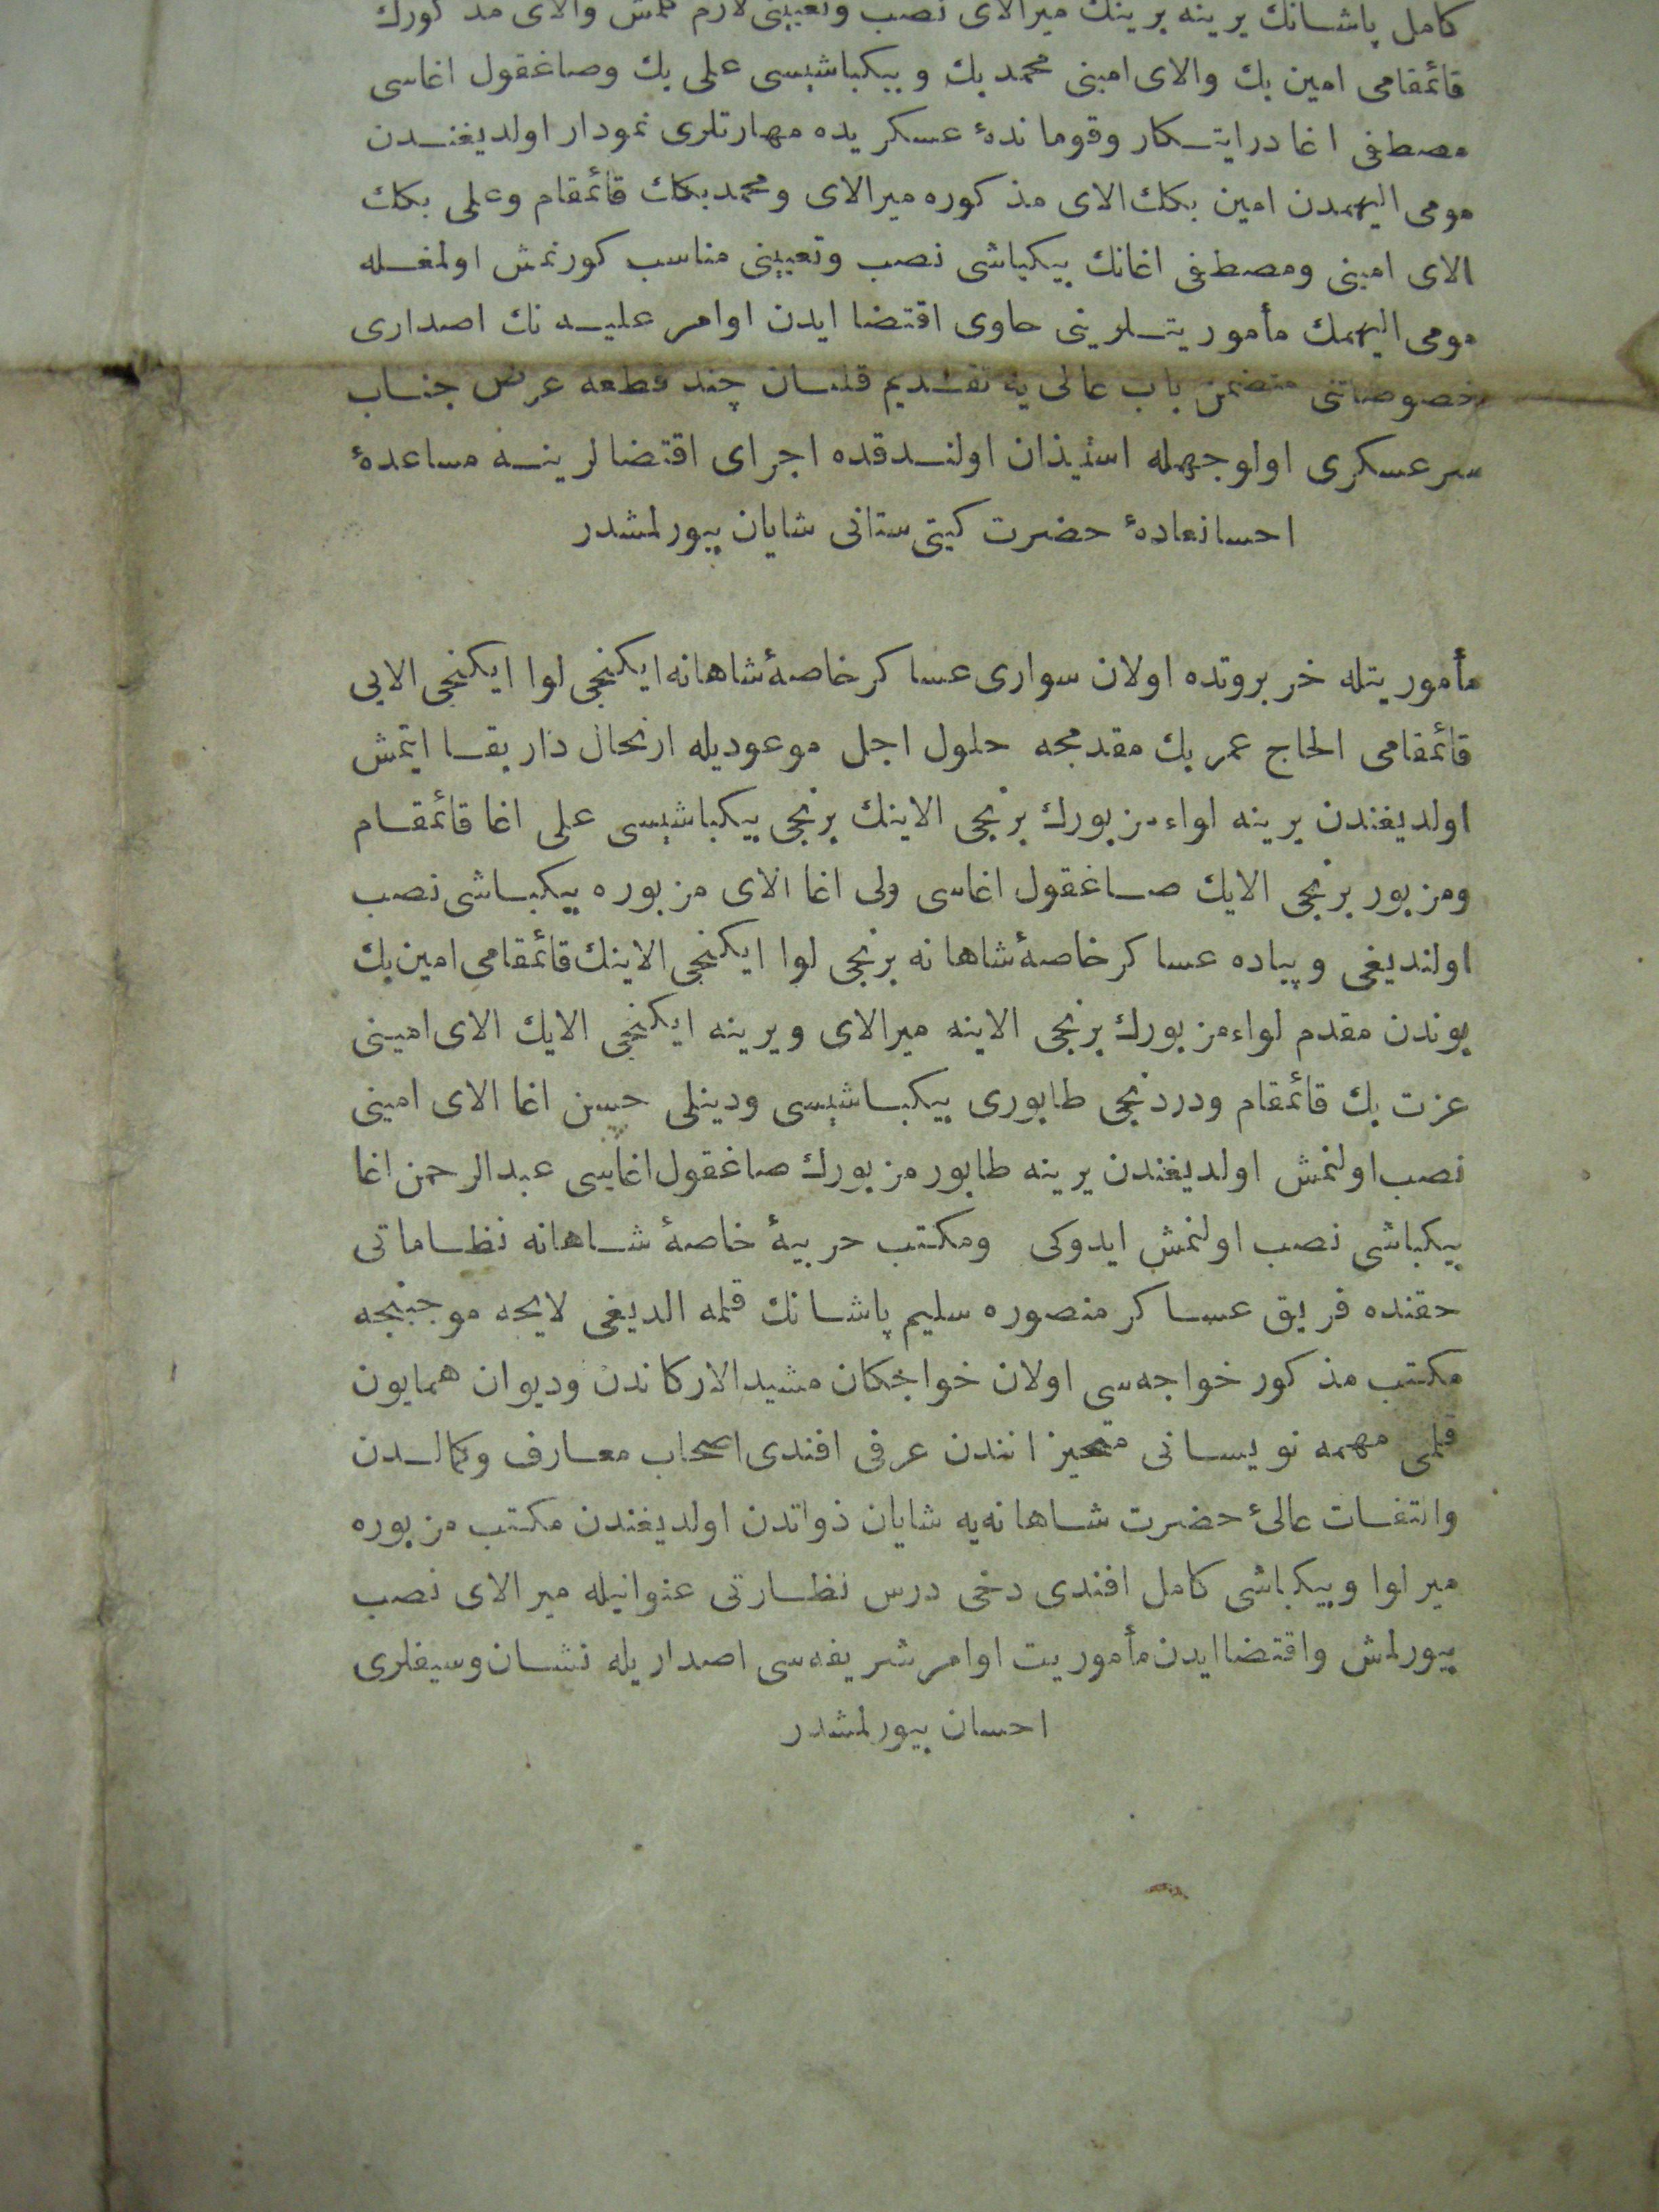 كامل پاشانك يرينه برينك ميرالاى نصب وتعيينى لازم كلمش والاى مذكورك
قائمقامى امين بك والاى امينى محمد بك و بيكباشيسى على بك وصاغقول اغاسى
مصطفى اغا درايتكار وقوماندۀ عسكريده مهارتلرى نمودار اولديغندن
مومى اليهمدن امين بكك الاى مذكوره ميرالاى ومحمد بكك قائمقام وعلى بكك
الاى امينى ومصطفى اغانك بيكباشى نصب وتعيينى مناسب كورنمش اولمغله
مومى اليهمك مأموريتلرينى حاوى اقتضا ايدن اوامر عليه نك اصدارى
خصوصاتنى متضمن باب عالى يه تقديم قلنان چند قطعه عرض جناب
سرعسكرى اولوجهله استيذان اولندقده اجراى اقتضالرينه مساعدۀ
احسانعادۀ حضرت كيتى ستانى شايان بيورلمشدر
مأموريتله خربروتده اولان سوارى عساكر خاصۀ شاهانه ايكنجى لوا ايكنجى الايى
قائمقامى الحاج عمر بك مقدمجه حلول اجل موعوديله ارتحال دار بقا ايتمش
اولديغندن يرينه لواء مزبورك برنجى الاينك برنجى بيكباشيسى على اغا قائمقام
ومزبور برنجى الايك صاغقول اغاسى ولى اغا الاى مزبوره بيكباشى نصب
اولنديغى وپياده عساكر خاصۀ شاهانه برنجى لوا ايكنجى الاينك قائمقامى امين بك
بوندن مقدم لواء مزبورك برنجى الاينه ميرالاى ويرينه ايكنجى الايك الاى امينى
عزت بك قائمقام ودردنجى طابورى بيكباشيسى ودينلى حسن اغا الاى امينى
نصب اولنمش اولديغندن يرينه طابور مزبورك صاغقول اغاسى عبدالرحمن اغا
بيكباشى نصب اولنمش ايدوكى ومكتب حربيۀ خاصۀ شاهانه نظاماتى
حقنده فريق عساكر منصوره سليم پاشانك قلمه الديغى لايحه موجبنجه
مكتب مذكور خواجه‌سى اولان خواجكان مشيدالاركاندن وديوان همايون
قلمى مهمه نويسانى متحيزانندن عرفى افندى اصحاب معارف وكمالدن
والتفات عالئ حضرت شاهانه‌يه شايان ذواتدن اولديغندن مكتب مزبوره
ميرلوا وبيكباشى كامل افندى دخى درس نظارتى عنوانيله ميرالاى نصب
بيورلمش واقتضا ايدن مأموريت اوامر شريفه‌سى اصداريله نشان وسيفلرى
احسان بيورلمشدر